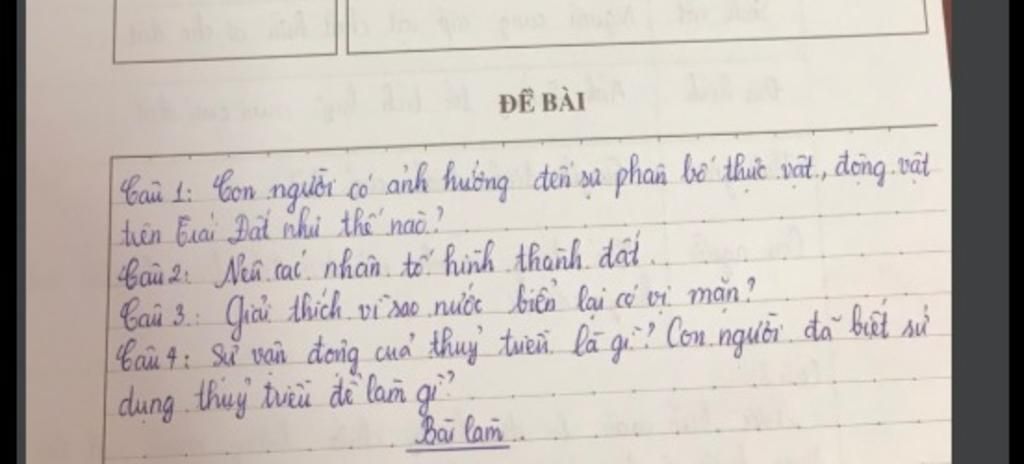 ĐỀ BÀI
Câu 1: Con người có ảnh hưởng đến sự phân bố thực vật, động vật
trên Trái Đất như thế nào?
Câu 2: Nêu các nhân tố hình thành đất.
Câu 3: Giải thích vì sao nước biển lại có vị mặn?
Câu 4: Sự vận động của thuỷ triều là gì? Con người đã biết sử
dụng thủy triều để làm gì?
Bài làm